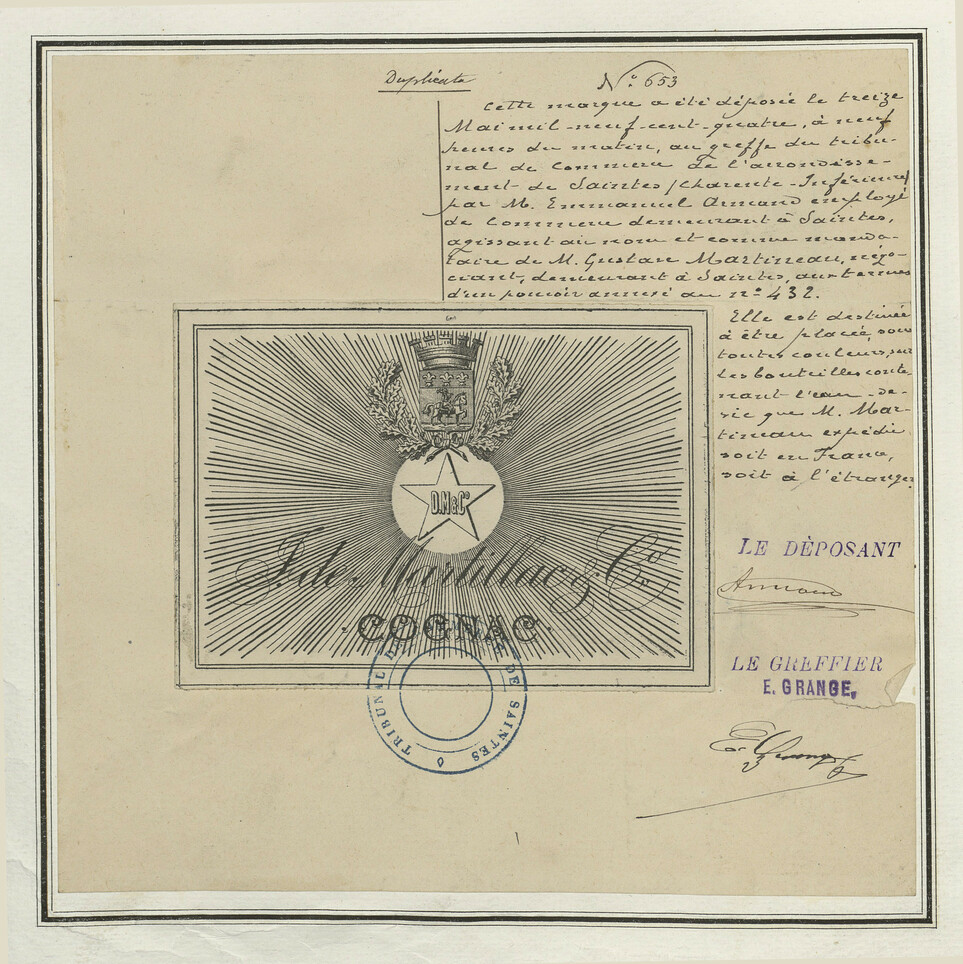 Duplicata
N° 653
Cette marque a été déposée le treize
Mai mil-neuf-cent-quatre, à neuf
heures du matin, au greffe du tribu-
nal de Commerce de l'arrondisse-
ment de Saintes (Charente-Inférieure)
par M. Emmanuel Armand employé
de Commerce demeurant à Saintes,
agissant au nom et comme manda-
taire de M. Gustave Martineau, négo-
ciant, demeurant à Saintes, aux termes
d'un pouvoir annexé au n° 432.
Elle est destinée
à être placée, sous
toutes couleurs, sur
les bouteilles conte
nant l'eau-de-
vie que M. Mar-
tineau expédie
soit en France,
soit à l'étranger
D.M&C°
J. de Martillac & Co.
COGNAC
TRIBUNAL DE DE SAINTES
LE DÉPOSANT
Armand
LE GREFFIER
E. GRANGE,